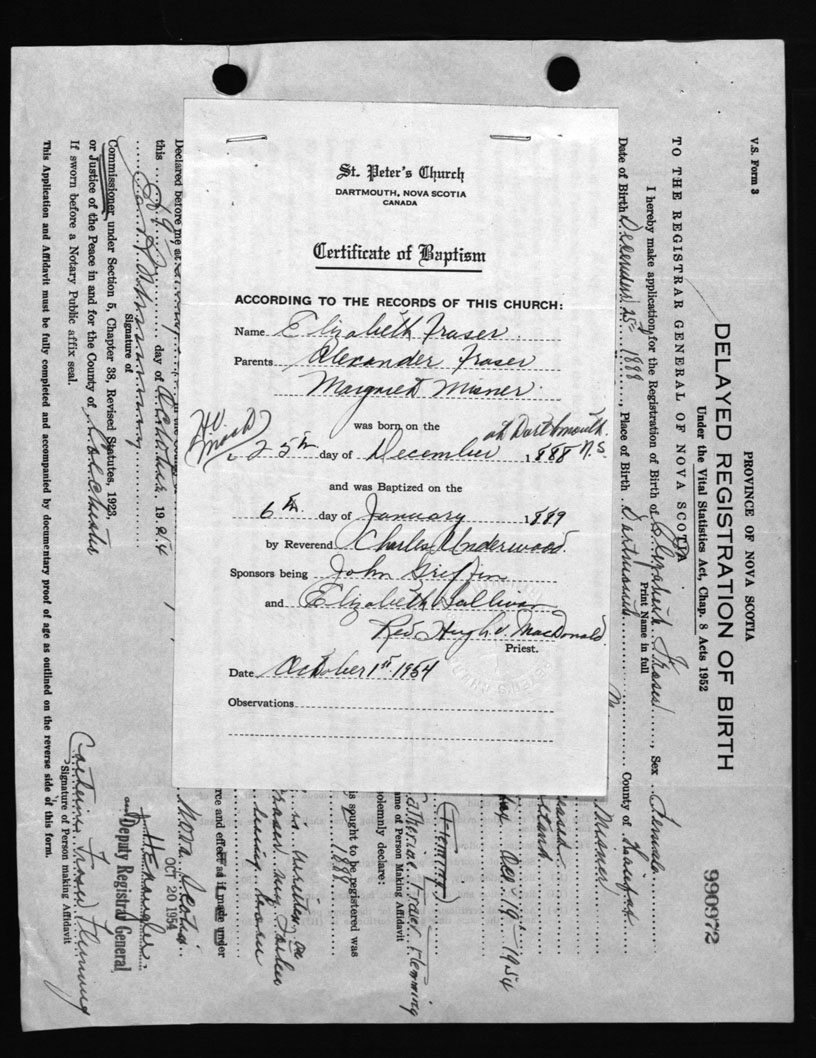 St. Peter's Church
DARTMOUTH, NOVA SCOTIA
CANADA
Certificate of Baptism
ACCORDING TO THE RECORDS OF THIS CHURCH:
Name Elizabeth Fraser
Parents Alexander Fraser
Margaret Misner
was born on the at Dartmouth
25th day of December 1888 N.S.
and was Baptized on the
6th day of January 1889
by Reverend Charles Underwood.
Sponsors being John Griffin
and Elizabeth Sullivan
Rev Hugh V. MacDonald
Priest.
Date October 1st 1954
Observations
V.S. Form 3
PROVINCE OF NOVA SCOTIA
DELAYED REGISTRATION OF BIRTH
Under the Vital Statistics Act, Chap. 8 Acts 1952
990972
TO THE REGISTRAR GENERAL OF NOVA SCOTIA
I hereby make application for the Registration of Birth of Elizabeth Fraser, Sex Female
Print Name in full
Date of Birth December 25th 1888, Place of Birth Dartmouth County of Halifax
Misner
Oct 19th 1954
(Flemming)
Catherine Fraser Flemming
ame of Person Making Affidavit
olemnly declare:
is sought to be registered was
1888
is written on
my
being born
rce and effect as if made under
Declared before me at
this 19 day of October 1954
Nova Scotia
OCT 20 1954
Signature of
Deputy Registrar General
Commissioner, under Section 5, Chapter 38, Revised Statutes, 1923,
or Justice of the Peace in and for the County of Colchester
If sworn before a Notary Public affix seal.
Catherine Fraser Flemming
Signature of Person making Affidavit
This Application and Affidavit must be fully completed and accompanied by documentary proof of age as outlined on the reverse side of this form.